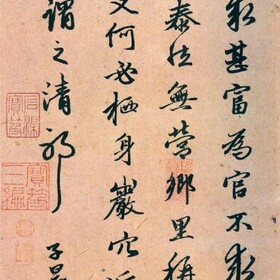 甚富為官不求
泰恬無營鄉里稱
何必栖身巖穴
謂之清耶
子昂